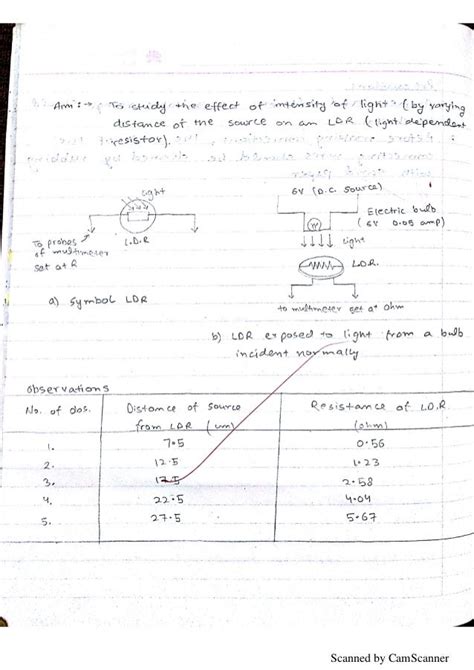 Aim :→ To study the effect of intensity of light (by varying
distance of the source on an LDR (light dependent
resistor).
light
L.D.R
To probes
of multimeter
set at R
a) Symbol LDR
6V (D.C. source)
Electric bulb
(6V 0.05 amp)
W
light
LDR.
to multimeter set at ohm
b) LDR exposed to light from a bulb
incident normally
Observations
No. of obs. Distance of source from LDR (cm) Resistance of LDR (ohm)
1. 7.5 0.56
2. 12.5 1.23
3. 17.5 2.58
4. 22.5 4.04
5. 27.5 5.67
Scanned by CamScanner